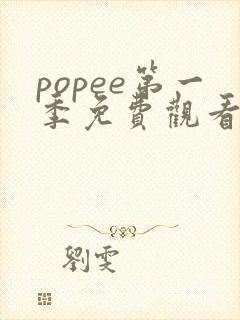 popee第一
季免費觀看
劉雯